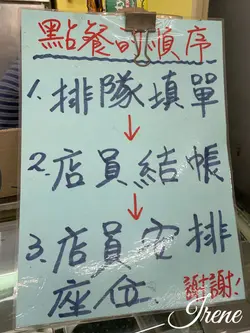 點餐的順序
1. 排隊填單
↓
2. 店員結帳
↓
3. 店員安排
座位
謝謝!
Irene